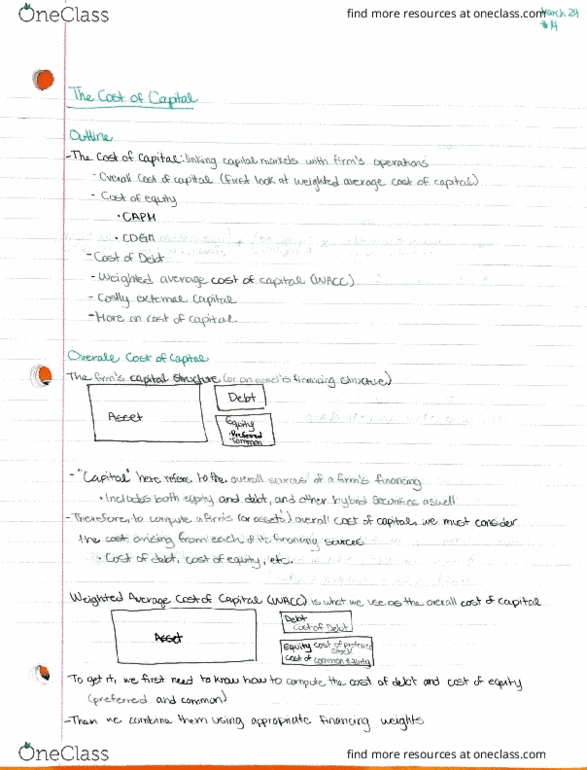 OneClass
find more resources at oneclass.com
March 24
#14
The Cost of Capital
Outline
-The Cost of Capital: linking capital markets with firm's operations
- Overall Cost of capital (first look at weighted average cost of capital)
- Cost of equity
• CAPM
• CDGM
- Cost of Debt
- Weighted average cost of capital (WACC)
- Costly external capital
- More on cost of capital
Overall Cost of Capital
The firm's capital structure (or an asset's financing structure)
Debt
Asset
Equity
•Preferred
•Common
- "Capital" here refers to the overall sources of a firm's financing
• Includes both equity and debt, and other hybrid securities as well
-Therefore, to compute a firm's (or assets') overall cost of capital, we must consider
the cost arising from each of its financing sources
• Cost of debt, cost of equity, etc.
Weighted Average Cost of Capital (WACC) is what we use as the overall cost of capital
Debt
Cost of Debt
Asset
Equity cost of preferred
stock
cost of common equity
-To get it, we first need to know how to compute the cost of debt and cost of equity
(preferred and common)
-Then we combine them using appropriate financing weights
OneClass
find more resources at oneclass.com